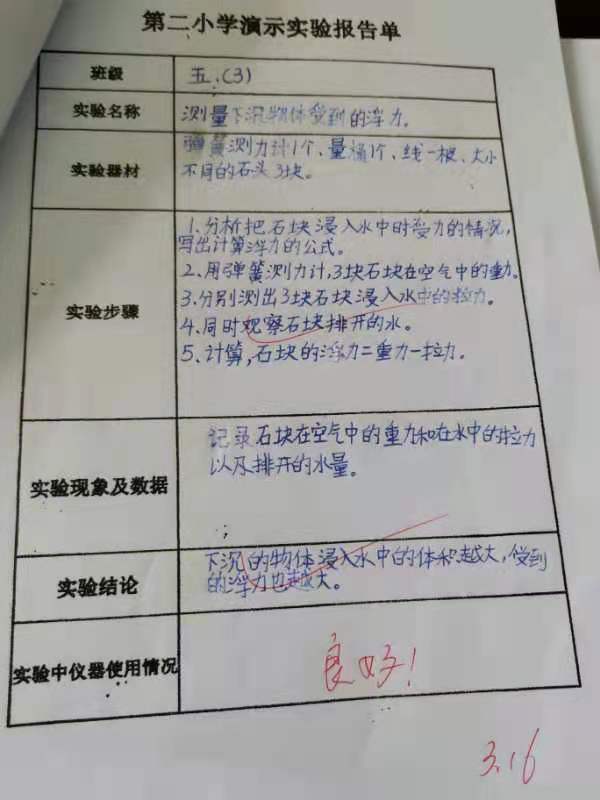 第二小学演示实验报告单
班级 五.(3)
实验名称 测量下沉物体受到的浮力。
实验器材 弹簧测力计1个、量桶1个、线一根、大小
不同的石头3块。
实验步骤
1、分析把石块浸入水中时受力的情况,
写出计算浮力的公式。
2、用弹簧测力计,3块石块在空气中的重力。
3、分别测出3块石块浸入水中的拉力。
4、同时观察石块排开的水。
5、计算,石块的浮力=重力-拉力。
实验现象及数据
记录石块在空气中的重力和在水中的拉力
以及排开的水量。
实验结论
下沉的物体浸入水中的体积越大,受到
的浮力也越大。
实验中仪器使用情况 良好!
3.16